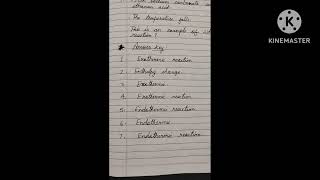 ethanoic acid.
The temperature falls.
This is an example of
reaction?
Answer Key
1. Exothermic reaction
2. Enthalpy change.
3. Exothermic
4. Exothermic reaction
5. Endothermic reaction
6. Endothermic
7. Endothermic reaction
KINEMASTER